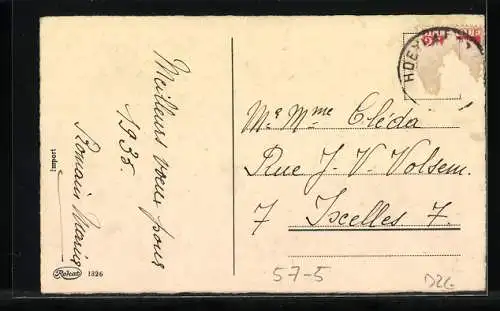 Meilleurs vœux pour
1935.
Romain Maria
import
Rekcat 1326
HOEY
Mr Mme Cléda
Rue J. V. Volsem.
7 Ixelles 7.
57-5